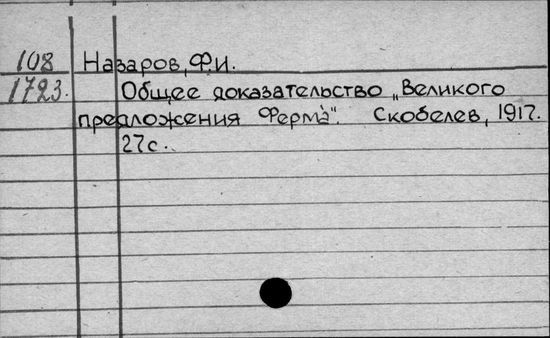 108 Назаров, Ф.И.
1723. Общее доказательство „Великого
предложения Ферма". Скобелев, 1917.
27с.